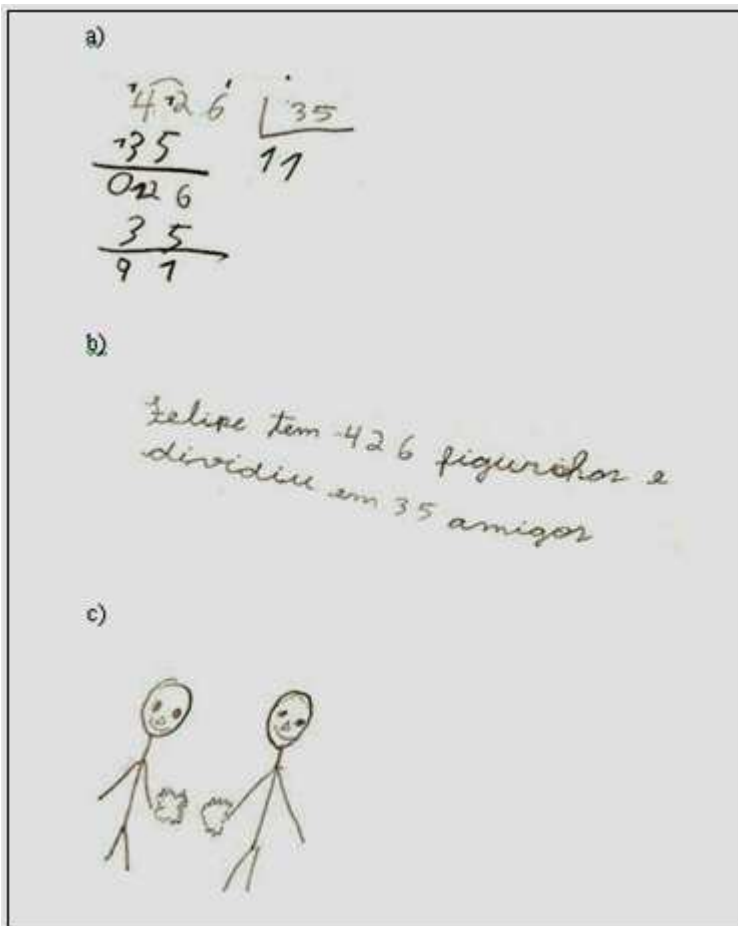 a)
426 35
35 11
0126
35
91
b)
Felipe tem 426 figurinhas e
dividiu em 35 amigos
c)